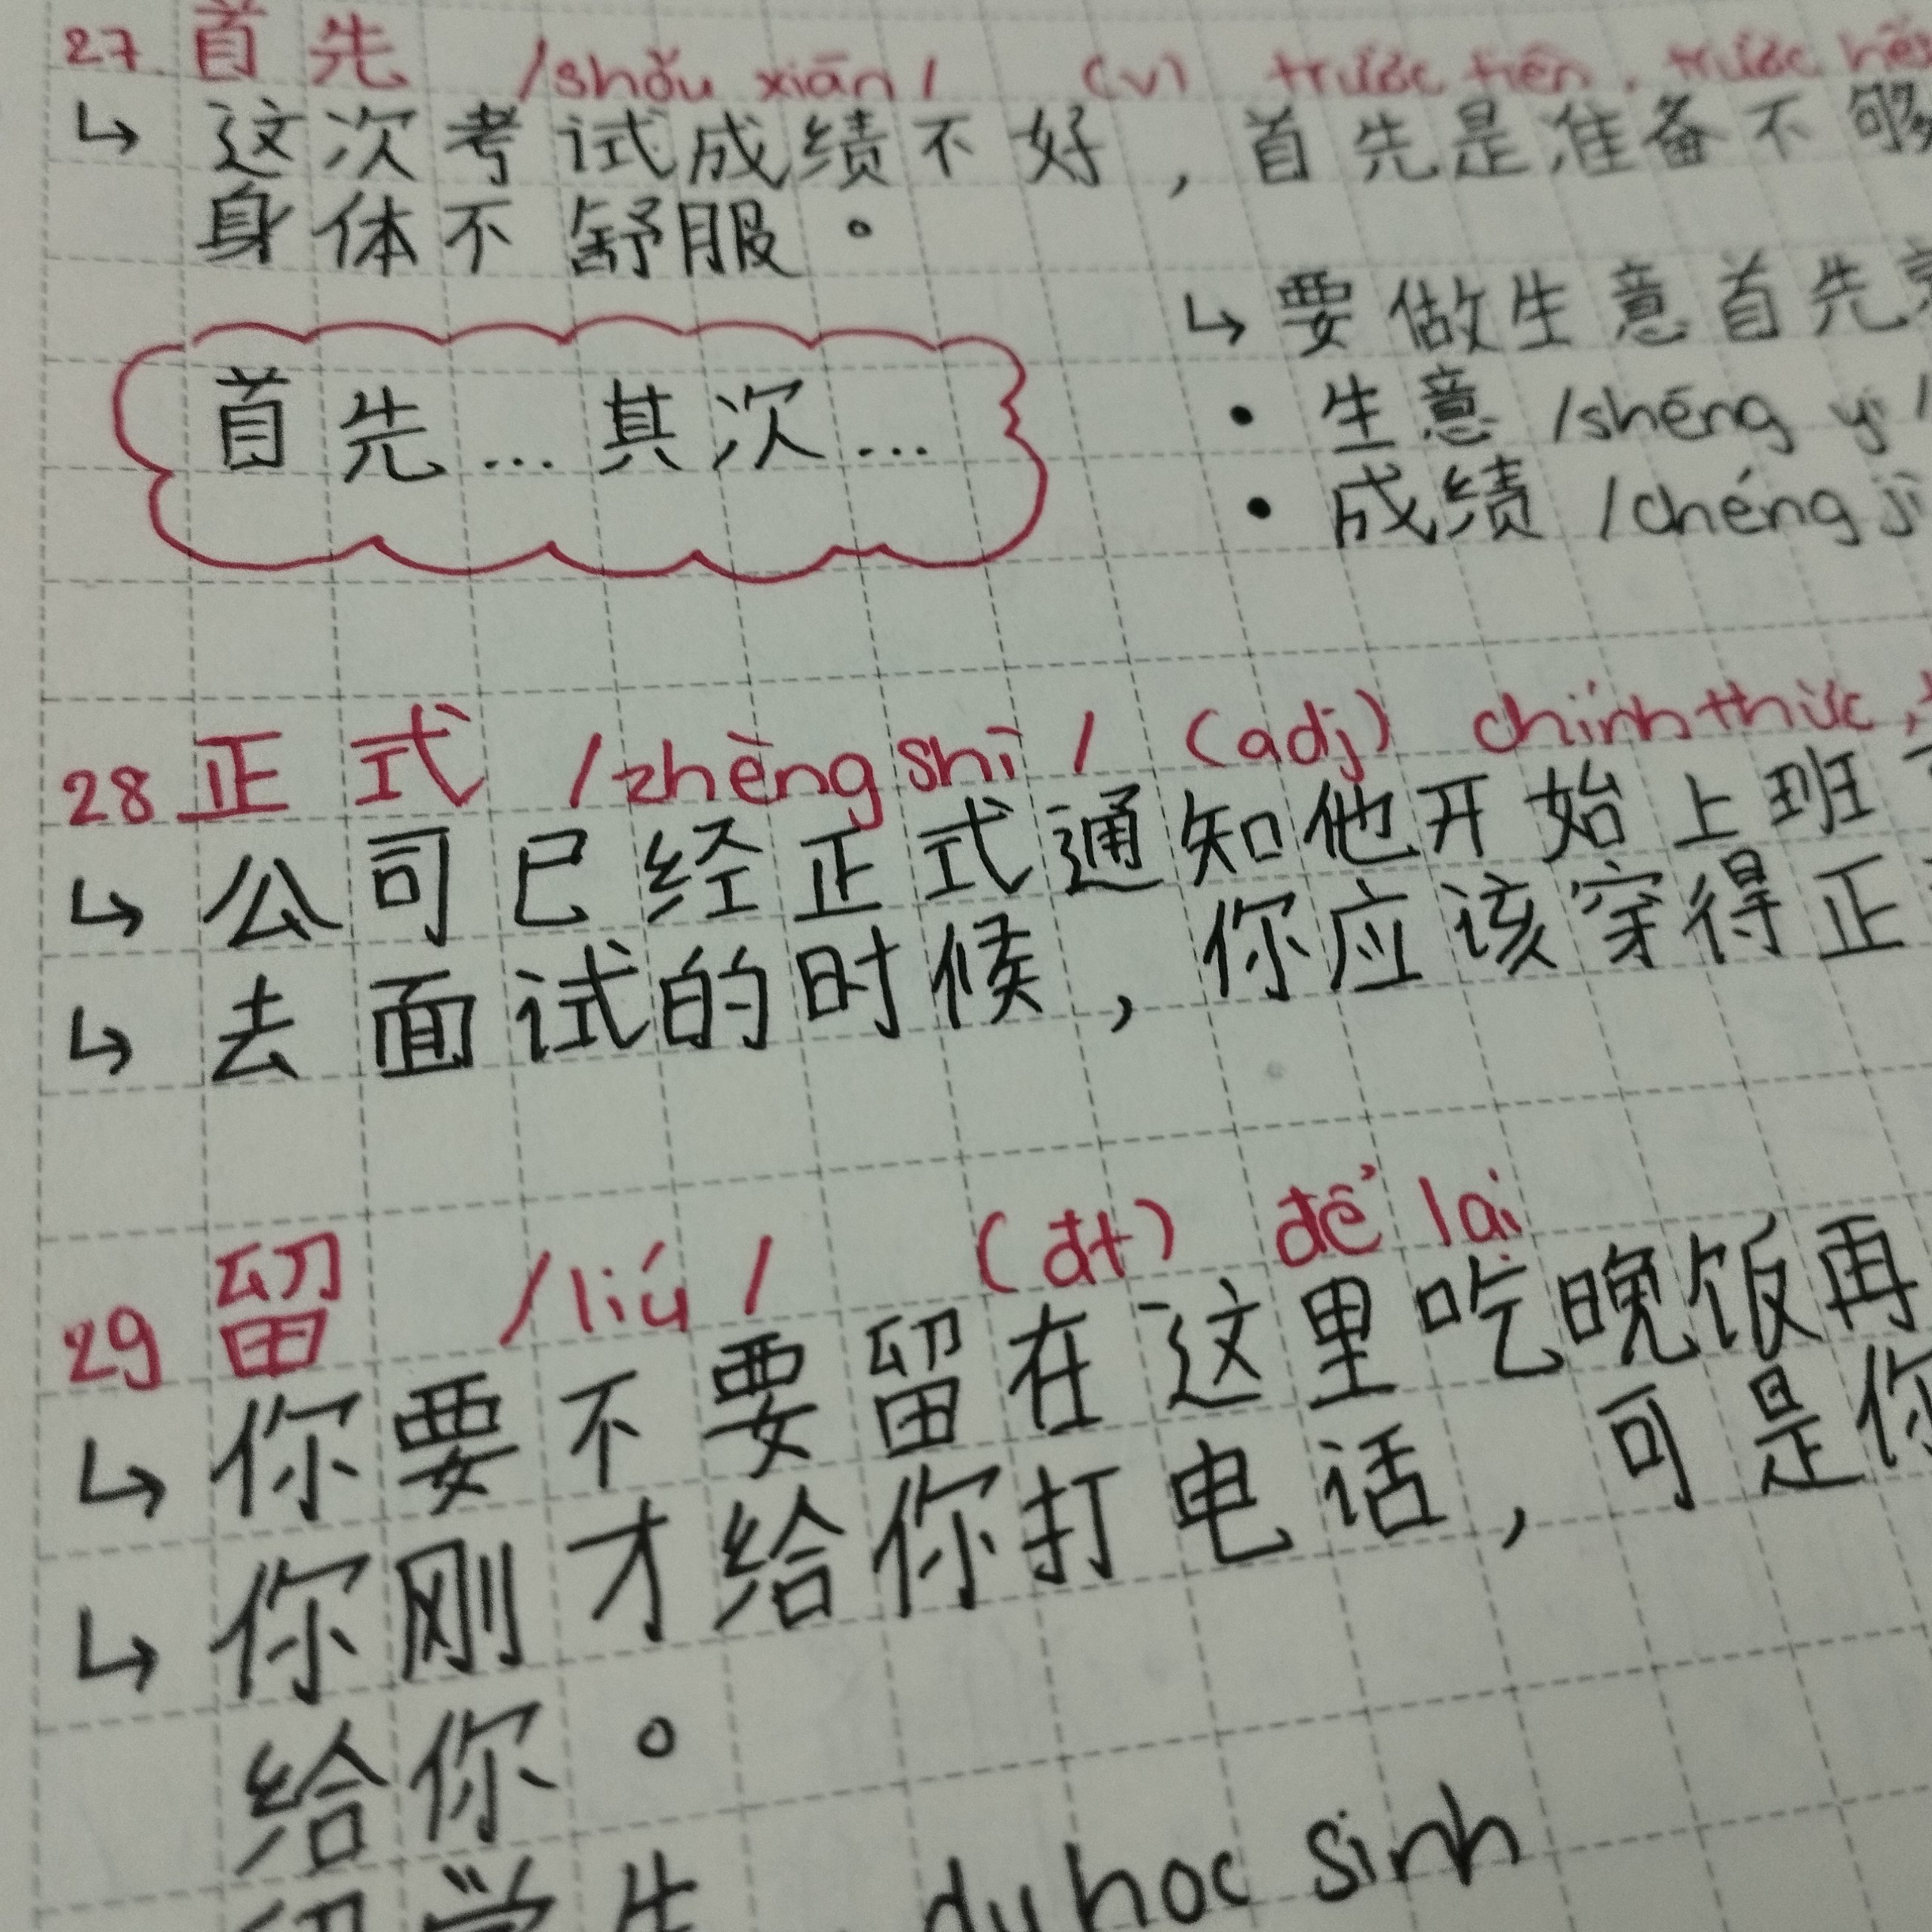 27. 首先 /shǒu xiān/ (v) trước tiên, trước hết
↳ 这次考试成绩不好，首先是准备不够
身体不舒服。
↳ 要做生意首先
首先...其次...
• 生意 /shēng yi/
• 成绩 /chéng jì
28 正式 /zhèng shì/ (adj) chính thức,
↳ 公司已经正式通知他开始上班
↳ 去面试的时候，你应该穿得正
29 留 /liú/ (đt) để lại
↳ 你要不要留在这里吃晚饭再
↳ 你刚才给你打电话，可是你
给你。
留学生 du học sinh